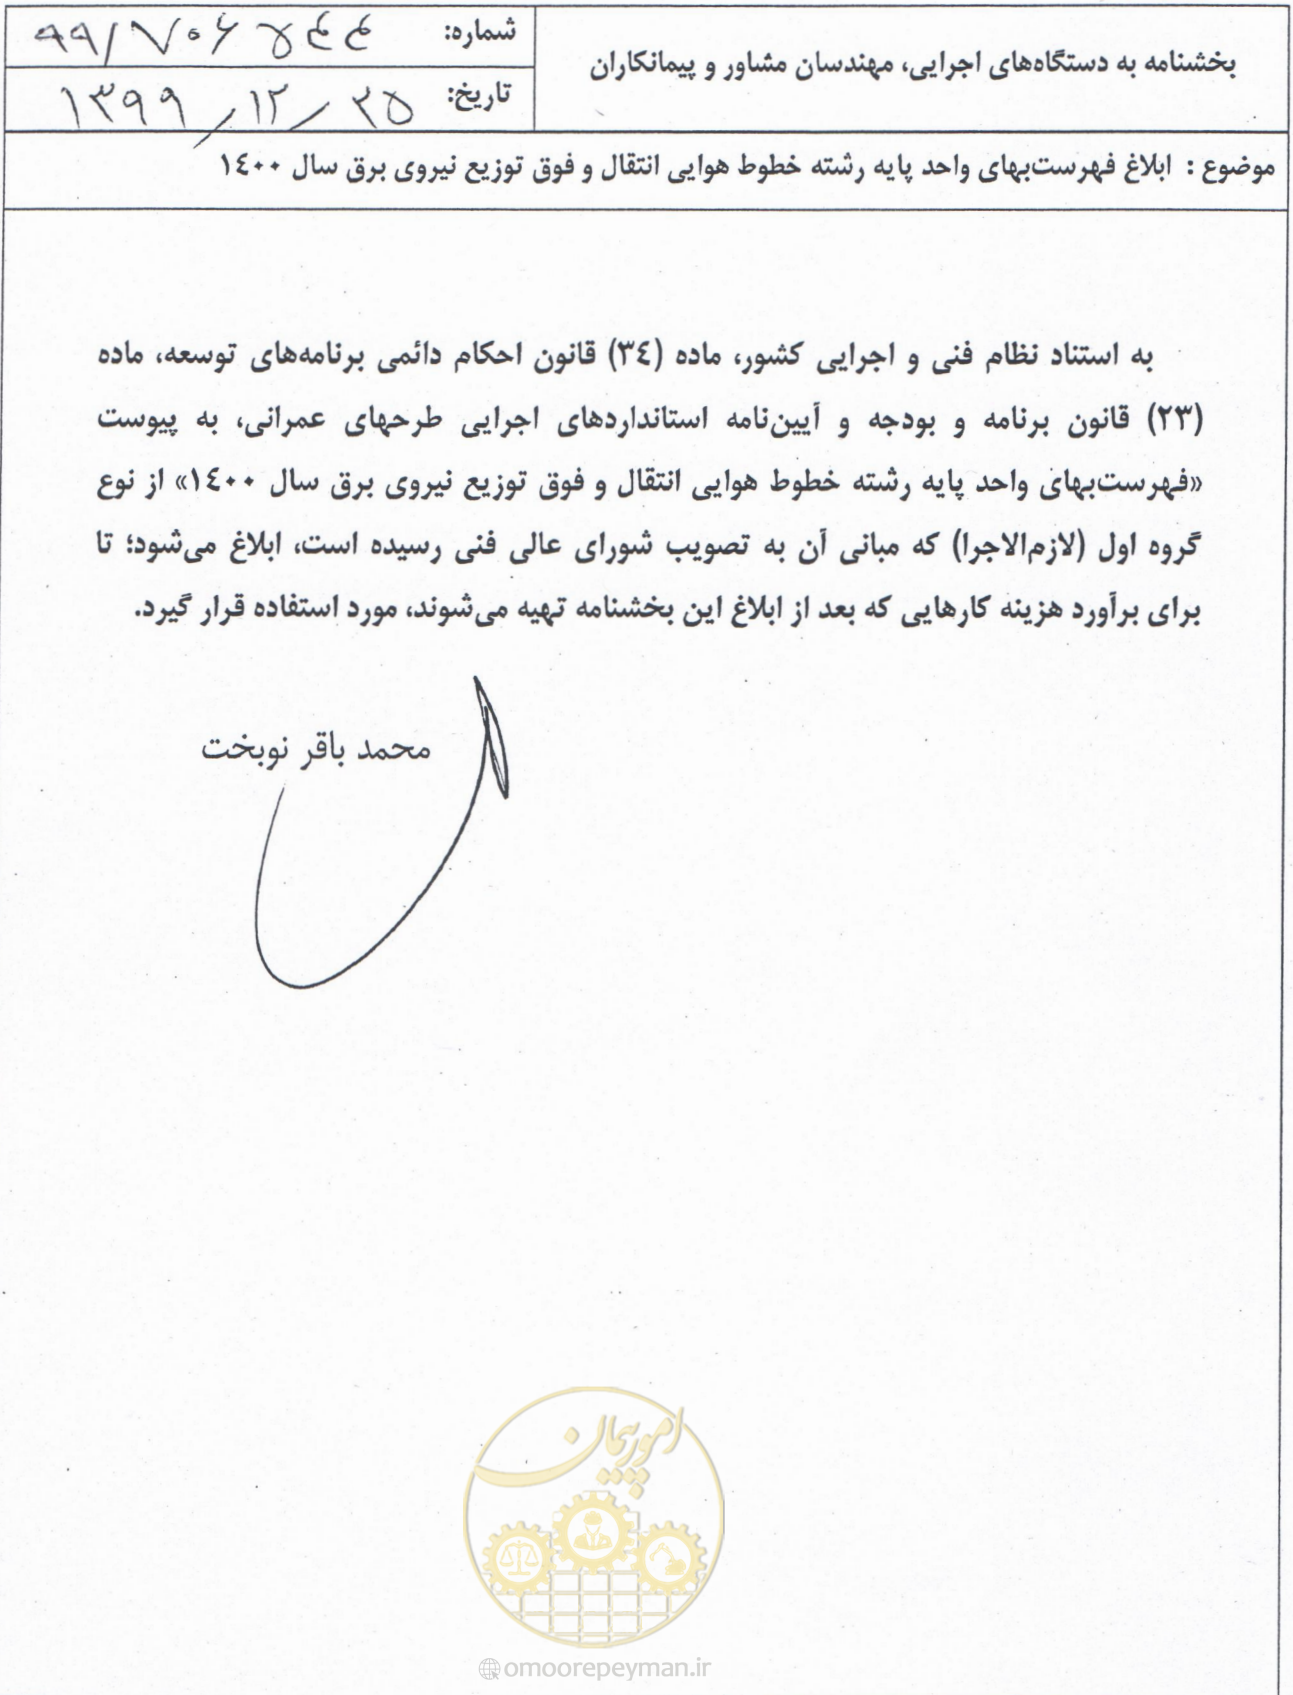 بخشنامه به دستگاه‌های اجرایی، مهندسان مشاور و پیمانکاران
شماره:
تاریخ: ۱۳۹۹/۱۲/۲۵
موضوع : ابلاغ فهرست‌بهای واحد پایه رشته خطوط هوایی انتقال و فوق توزیع نیروی برق سال ۱٤۰۰
به استناد نظام فنی و اجرایی کشور، ماده (۳٤) قانون احکام دائمی برنامه‌های توسعه، ماده
(۲۳) قانون برنامه و بودجه و آیین‌نامه استانداردهای اجرایی طرحهای عمرانی، به پیوست
«فهرست‌بهای واحد پایه رشته خطوط هوایی انتقال و فوق توزیع نیروی برق سال ۱٤۰۰» از نوع
گروه اول (لازم‌الاجرا) که مبانی آن به تصویب شورای عالی فنی رسیده است، ابلاغ می‌شود؛ تا
برای برآورد هزینه کارهایی که بعد از ابلاغ این بخشنامه تهیه می‌شوند، مورد استفاده قرار گیرد.
محمد باقر نوبخت
امور پیمان
omoorepeyman.ir